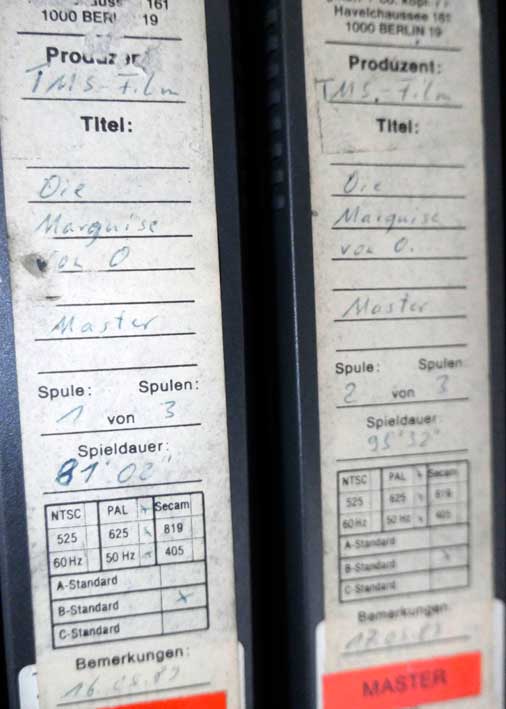 161
1000 BERLIN 19
Produzent:
TMS-Film
Titel:
Die
Marquise
von O
Master
Spule: Spulen:
1 von 3
Spieldauer:
81'02"
NTSC PAL x Secam
525 625 x 819
60 Hz 50 Hz x 405
A-Standard
B-Standard x
C-Standard
Bemerkungen:
Havelchaussee 161
1000 BERLIN 19
Produzent:
TMS,-Film
Titel:
Die
Marquise
von O....
Master
Spule: Spulen:
2 von 3
Spieldauer:
95'32"
NTSC PAL x Secam
525 625 x 819
60 Hz 50 Hz x 405
A-Standard
B-Standard x
C-Standard
Bemerkungen:
MASTER